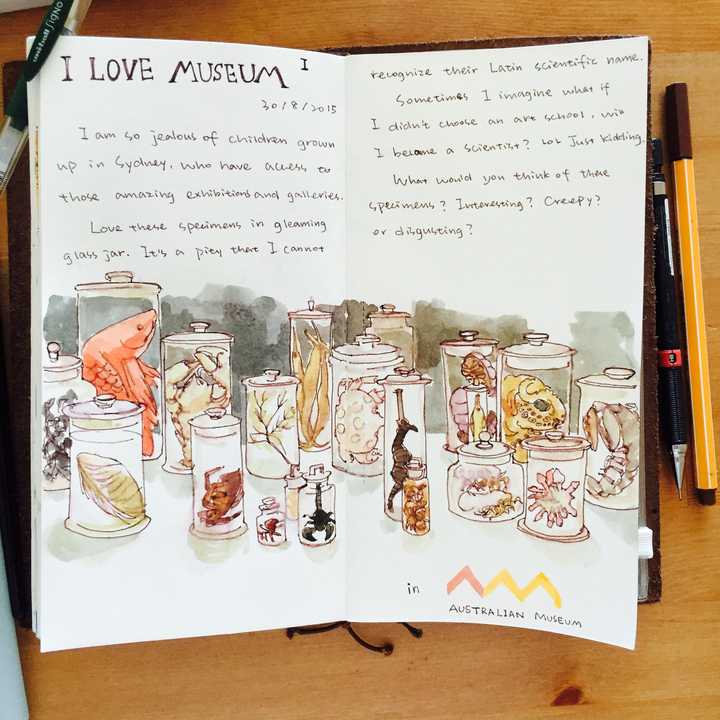 uni-ball SIGNO
I LOVE MUSEUM I
30/8/2015
I am so jealous of children grown
up in Sydney, who have access to
those amazing exhibitions and galleries.
Love these specimens in gleaming
glass jar. It's a pity that I cannot
recognize their Latin scientific name.
Sometimes I imagine what if
I didn't choose an art school, will
I became a scientist? LOL Just kidding.
What would you think of these
specimens? Interesting? Creepy?
or disgusting?
in
AUSTRALIAN MUSEUM